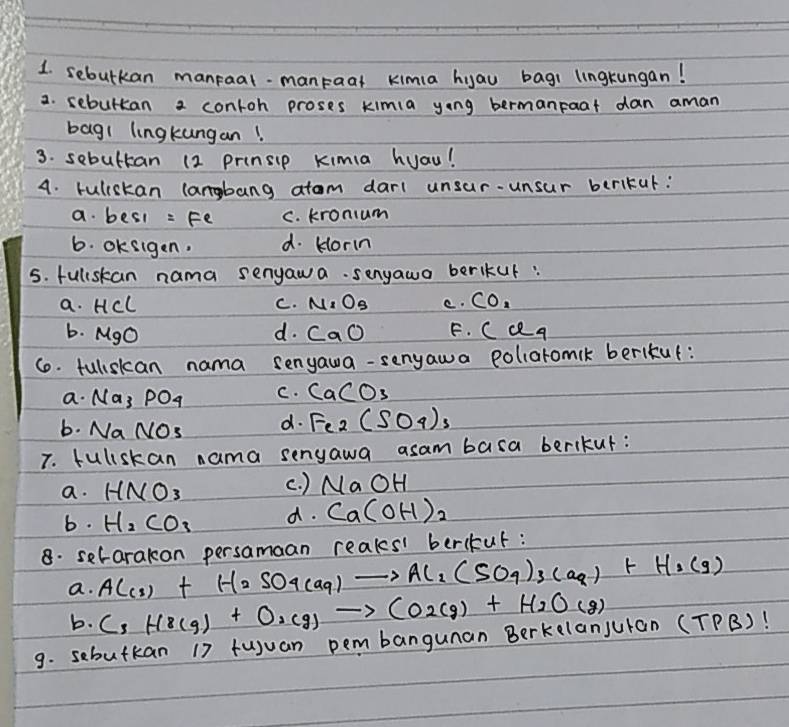 1. sebutkan manfaat - manfaat kimia hijau bagi lingkungan!
2. sebutkan 2 contoh proses kimia yang bermanfaat dan aman
bagi lingkungan!
3. sebutkan 12 prinsip kimia hijau!
4. tuliskan lambang atom dari unsur-unsur berikut:
a. besi = Fe c. kronium
b. oksigen. d. klorin
5. tuliskan nama senyawa - senyawa berikut:
a. HCl c. N2O5 e. CO2
b. MgO d. CaO F. C Cl4
6. tuliskan nama senyawa - senyawa poliatomik berikut:
a. Na3 PO4 c. CaCO3
b. Na NO3 d. Fe2 (SO4)3
7. tuliskan nama senyawa asam basa berikut:
a. HNO3 c.) NaOH
b. H2 CO3 d. Ca(OH)2
8. setarakan persamaan reaksi berikut:
a. Al(s) + H2 SO4(aq) → Al2 (SO4)3(aq) + H2(g)
b. C3 H8(g) + O2(g) → CO2(g) + H2O(g)
9. sebutkan 17 tujuan pembangunan Berkelanjutan (TPB)!